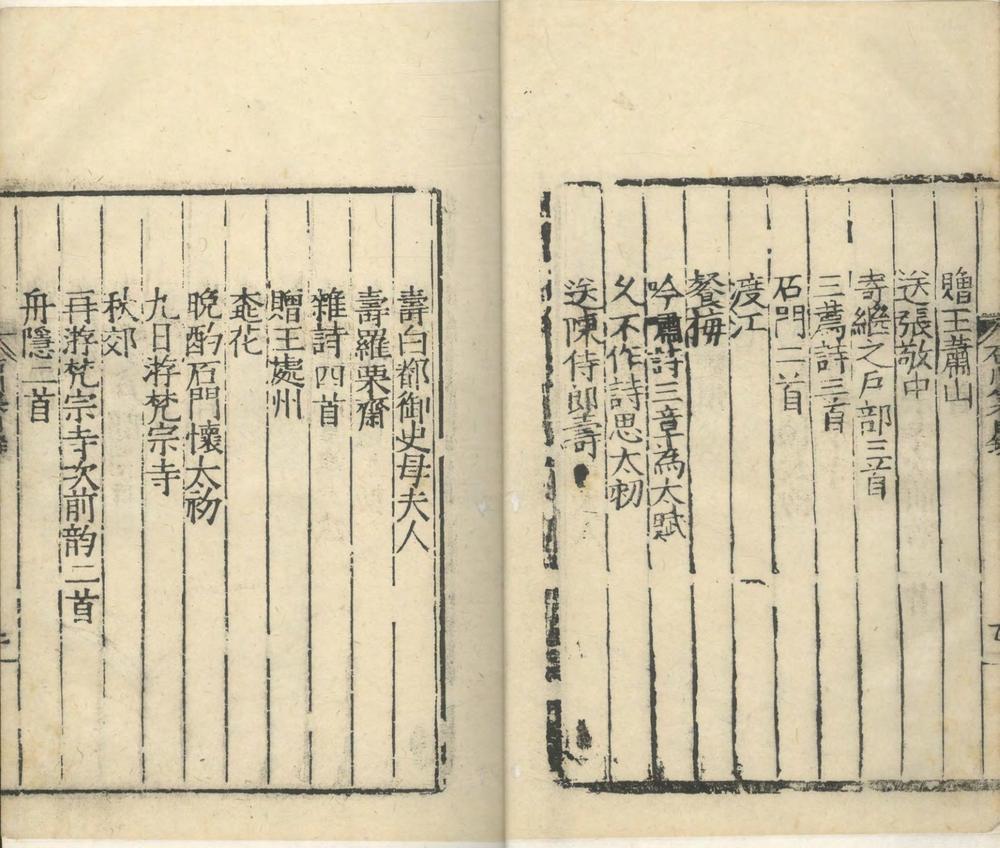 贈王蕭山
送張敬中
寄繼之戶部三首
三蔫詩三首
石門二首
渡江
餐梅
吟詩三章為太賦
久不作詩思太初
送陳侍郎壽
壽白都御史母夫人
壽羅栗齋
雜詩四首
贈王處州
葵花
晚酌石門懷太初
九日游梵宗寺
秋郊
再游梵宗寺次前韵二首
舟隱二首